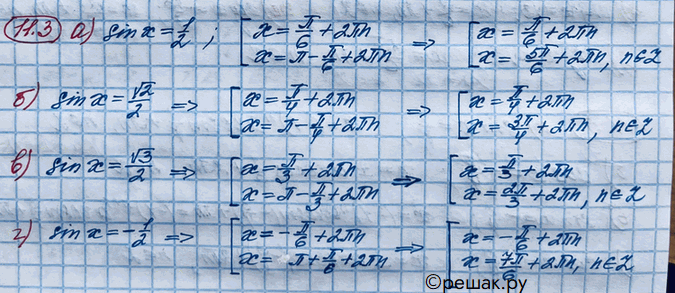 11.3 а) sin x = 1/2 ; [ x = π/6 + 2πn x = π - π/6 + 2πn => [ x = π/6 + 2πn x = 5π/6 + 2πn, n∈Z
б) sin x = √2/2 => [ x = π/4 + 2πn x = π - π/4 + 2πn => [ x = π/4 + 2πn x = 3π/4 + 2πn, n∈Z
в) sin x = √3/2 => [ x = π/3 + 2πn x = π - π/3 + 2πn => [ x = π/3 + 2πn x = 2π/3 + 2πn, n∈Z
г) sin x = -1/2 => [ x = -π/6 + 2πn x = π + π/6 + 2πn => [ x = -π/6 + 2πn x = 7π/6 + 2πn, n∈Z
©решак.ру